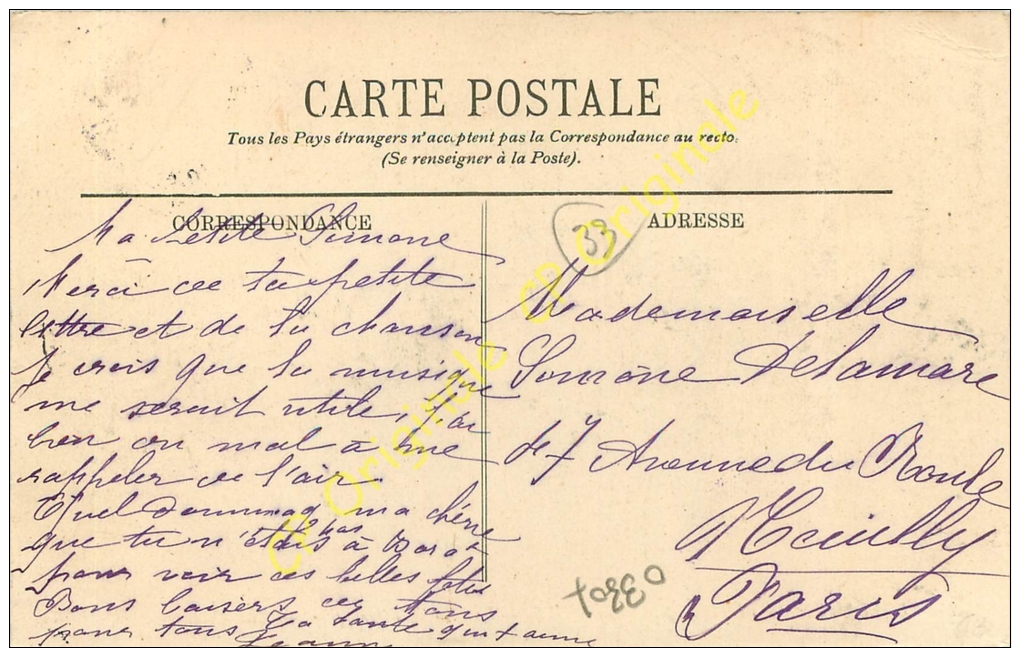 CARTE POSTALE
Tous les Pays étrangers n'acceptent pas la Correspondance au recto.
(Se renseigner à la Poste).
CORRESPONDANCE
Ma Petite Simone
Merci de ta petite
lettre et de la chanson
Je crois que la musique
me serait utile, j'ai
bien du mal à me
rappeler de l'air.
Quel dommag ma chérie
que tu n'étais pas à
pour voir ces belles fêtes
Bons baisers de tous
pour tous Ta tante qui t'aime
Jeanne
ADRESSE
33
Mademoiselle
Simone Delamare
47 Avenue du Roule
Neuilly
Paris
CP Originale CP Originale